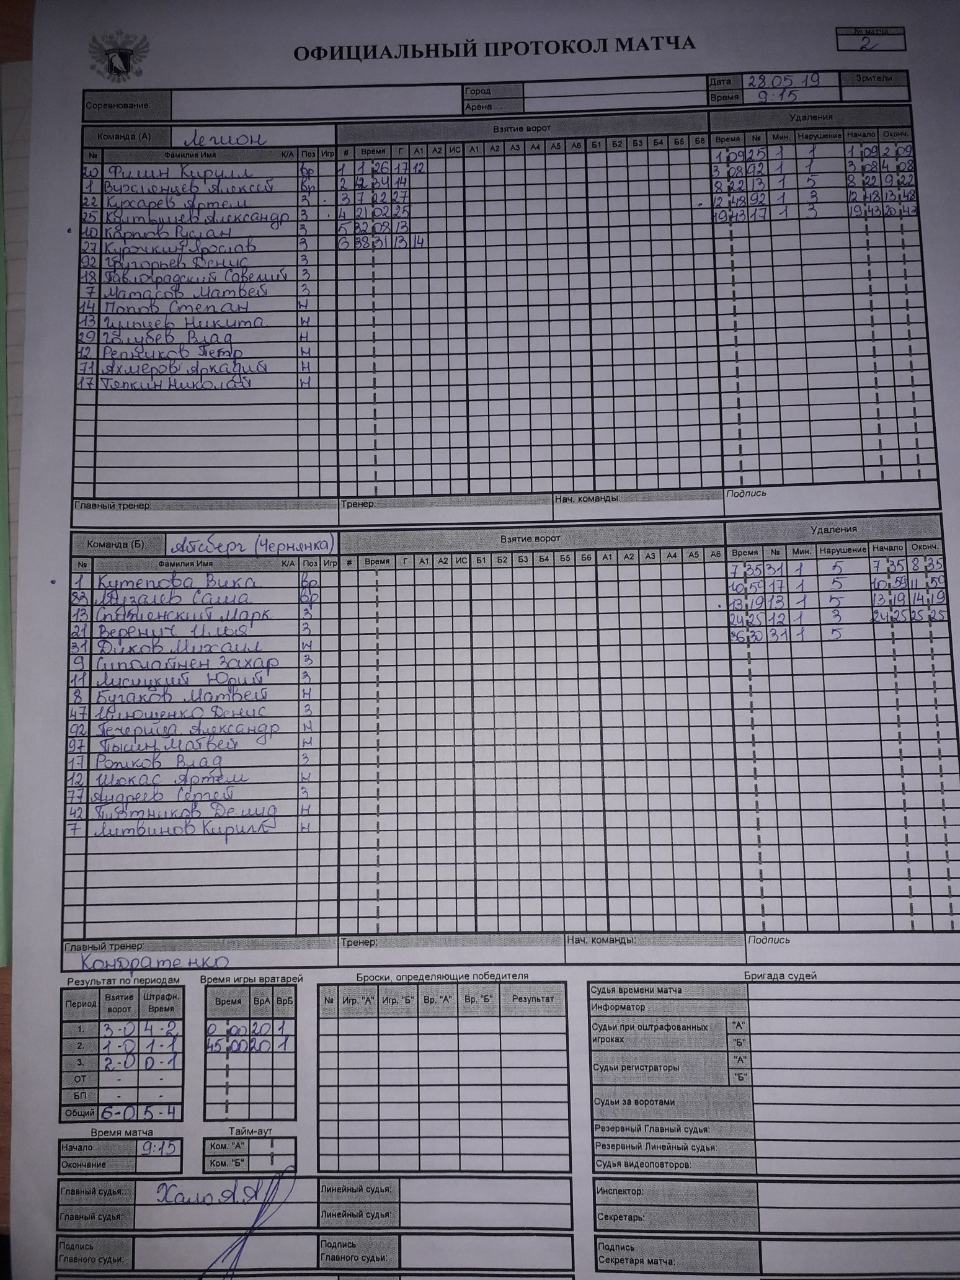 ОФИЦИАЛЬНЫЙ ПРОТОКОЛ МАТЧА
№ матча
2
Соревнование:
Город
Арена
Дата 28.05.19
Время 9:15
Зрители
Команда (А) Легион
Взятие ворот
Удаления
№ Фамилия Имя К/А Поз Игр # Время Г А1 А2 ИС А1 А2 А3 А4 А5 А6 Б1 Б2 Б3 Б4 Б5 Б6 Время № Мин. Нарушение Начало Оконч.
20 Филин Кирилл Вр 1 1 26 17 12 1 09 25 1 1 1 09 2 09
1 Алексей Вр 2 12 34 14 3 08 92 1 1 3 08 4 08
22 Кухарев Артем З 3 7 22 27 8 22 13 1 5 8 22 9 22
25 Александр З 4 21 02 25 12 48 92 1 3 12 48 13 48
10 Карпов Руслан З 5 32 08 13 19 43 17 1 3 19 43 20 43
27 Курочкин Ярослав З 6 38 31 13 14
92 Григорьев Денис З
18 Павлоградский Савелий З
7 Матасов Матвей З
14 Попов Степан Н
13 Никита Н
29 Голубев Влад Н
12 Репников Петр Н
71 Ахмеров Аркадий Н
17 Тяпкин Николай Н
Главный тренер: Тренер: Нач. команды: Подпись
Команда (Б): Айсберг (Чернянка)
Взятие ворот
Удаления
№ Фамилия Имя К/А Поз Игр # Время Г А1 А2 ИС Б1 Б2 Б3 Б4 Б5 Б6 А1 А2 А3 А4 А5 А6 Время № Мин. Нарушение Начало Оконч.
1 Кутепова Вика Вр 7 35 31 1 5 7 35 8 35
83 Саша Вр 10 59 17 1 5 10 59 11 59
13 Марк З 13 19 13 1 5 13 19 14 19
21 Веренич Илья З 24 25 12 1 3 24 25 25 25
31 Диков Михаил Н 36 30 31 1 5
9 Захар З
11 Лисицкий Юрий З
8 Бугаков Матвей Н
47 Денис З
92 Печерица Александр Н
97 Пысин Матвей Н
17 Рожков Влад З
12 Шокас Артем Н
77 Андреев Сергей З
42 Плотников Демид Н
7 Литвинов Кирилл Н
Главный тренер: Тренер: Нач. команды: Подпись
Кондратенко
Результат по периодам
Период Взятие ворот Штрафн. Время
1. 3-0 4-2
2. 1-0 1-1
3. 2-0 0-1
ОТ - -
БП - -
Общий 6-0 5-4
Время игры вратарей
Время ВрА ВрБ
0 00 20 1
45 00 20 1
Броски, определяющие победителя
№ Игр. "А" Игр. "Б" Вр. "А" Вр. "Б" Результат
Бригада судей
Судья времени матча
Информатор
Судьи при оштрафованных игроках "А" "Б"
Судьи регистраторы "А" "Б"
Судьи за воротами
Резервный Главный судья:
Резервный Линейный судья:
Судья видеоповторов:
Время матча
Начало 9:15
Окончание
Тайм-аут
Ком. "А"
Ком. "Б"
Главный судья: Хало А.А. Линейный судья: Инспектор:
Главный судья: Линейный судья: Секретарь:
Подпись Главного судьи: Подпись Главного судьи: Подпись Секретаря матча: